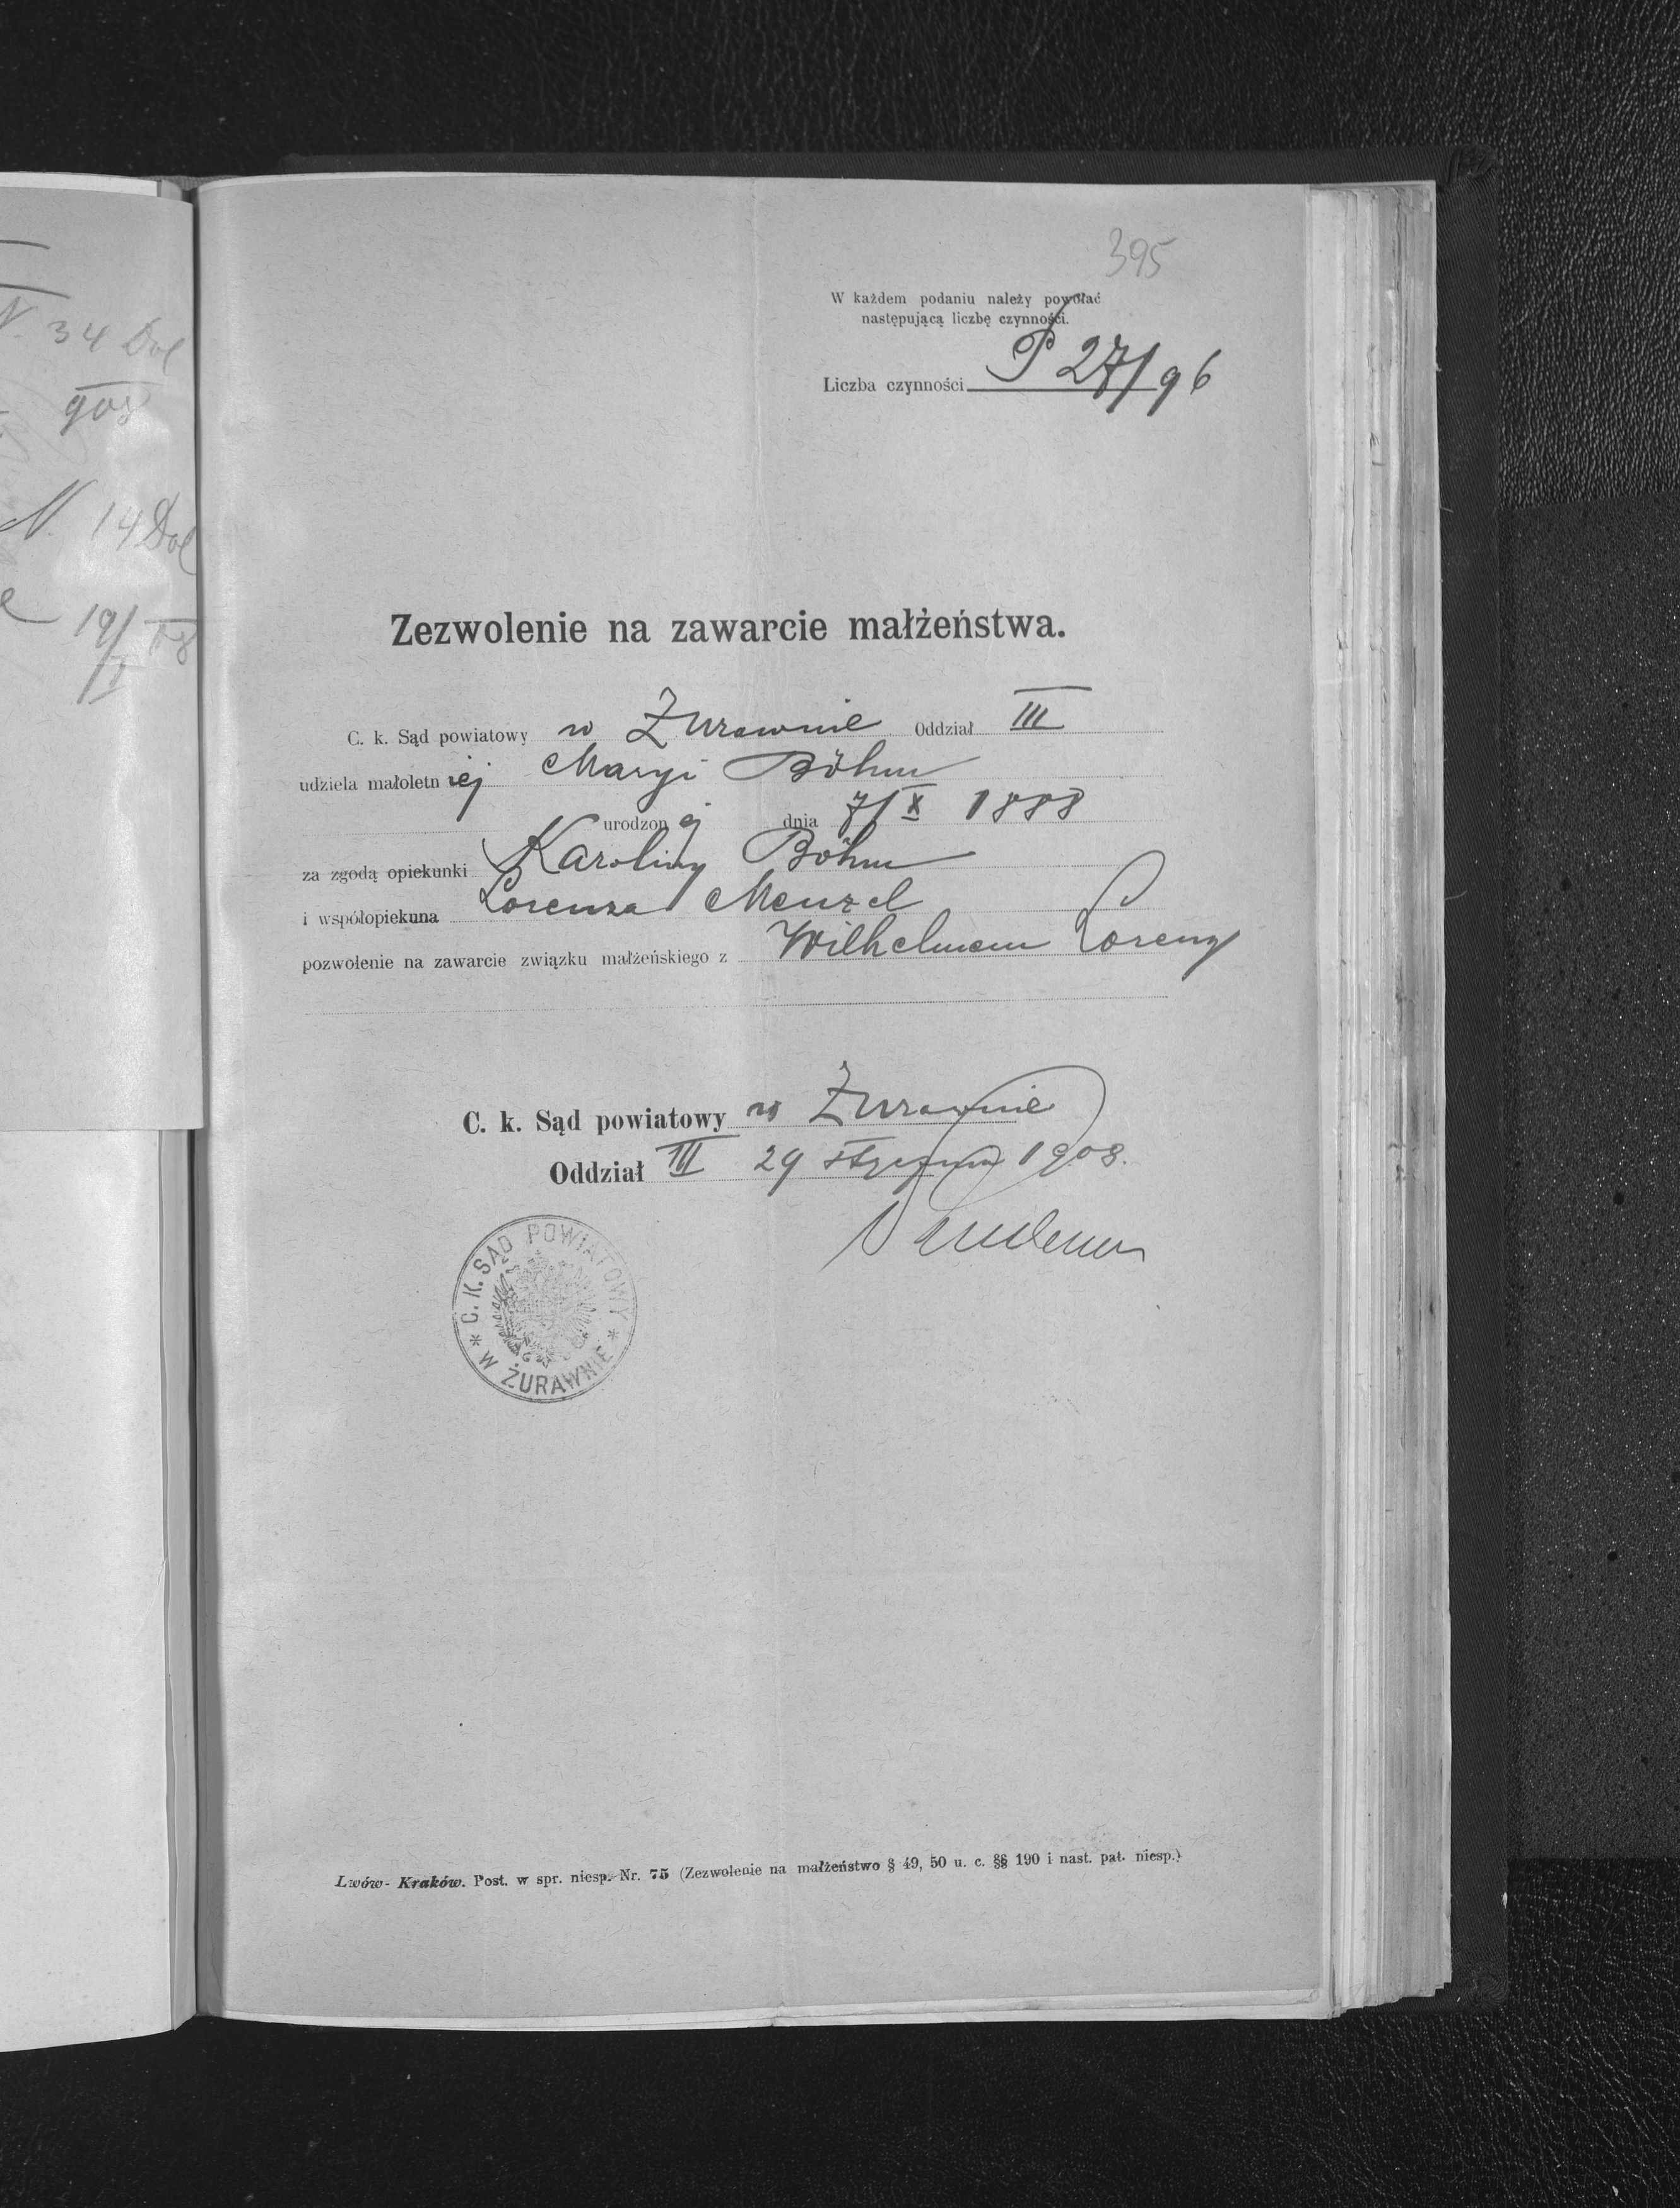 V. 34 Dol
908
N. 14 Dol
19/I 08
395
W każdem podaniu należy powołać
następującą liczbę czynności.
Liczba czynności P 27/96
Zezwolenie na zawarcie małżeństwa.
C. k. Sąd powiatowy w Żurawnie Oddział III
udziela małoletniej Maryi Böhm
urodzonej dnia 7/X 1888
za zgodą opiekunki Karoliny Böhm
i współopiekuna Lorenza Menzel
pozwolenie na zawarcie związku małżeńskiego z Wilhelmem Lorenz
C. k. Sąd powiatowy w Żurawnie
Oddział III 29 stycznia 1908.
* C. K. SĄD POWIATOWY *
W ŻURAWNIE
Lwów-Kraków. Post. w spr. niesp. Nr. 75 (Zezwolenie na małżeństwo § 49, 50 u. c. §§ 190 i nast. pat. niesp.)